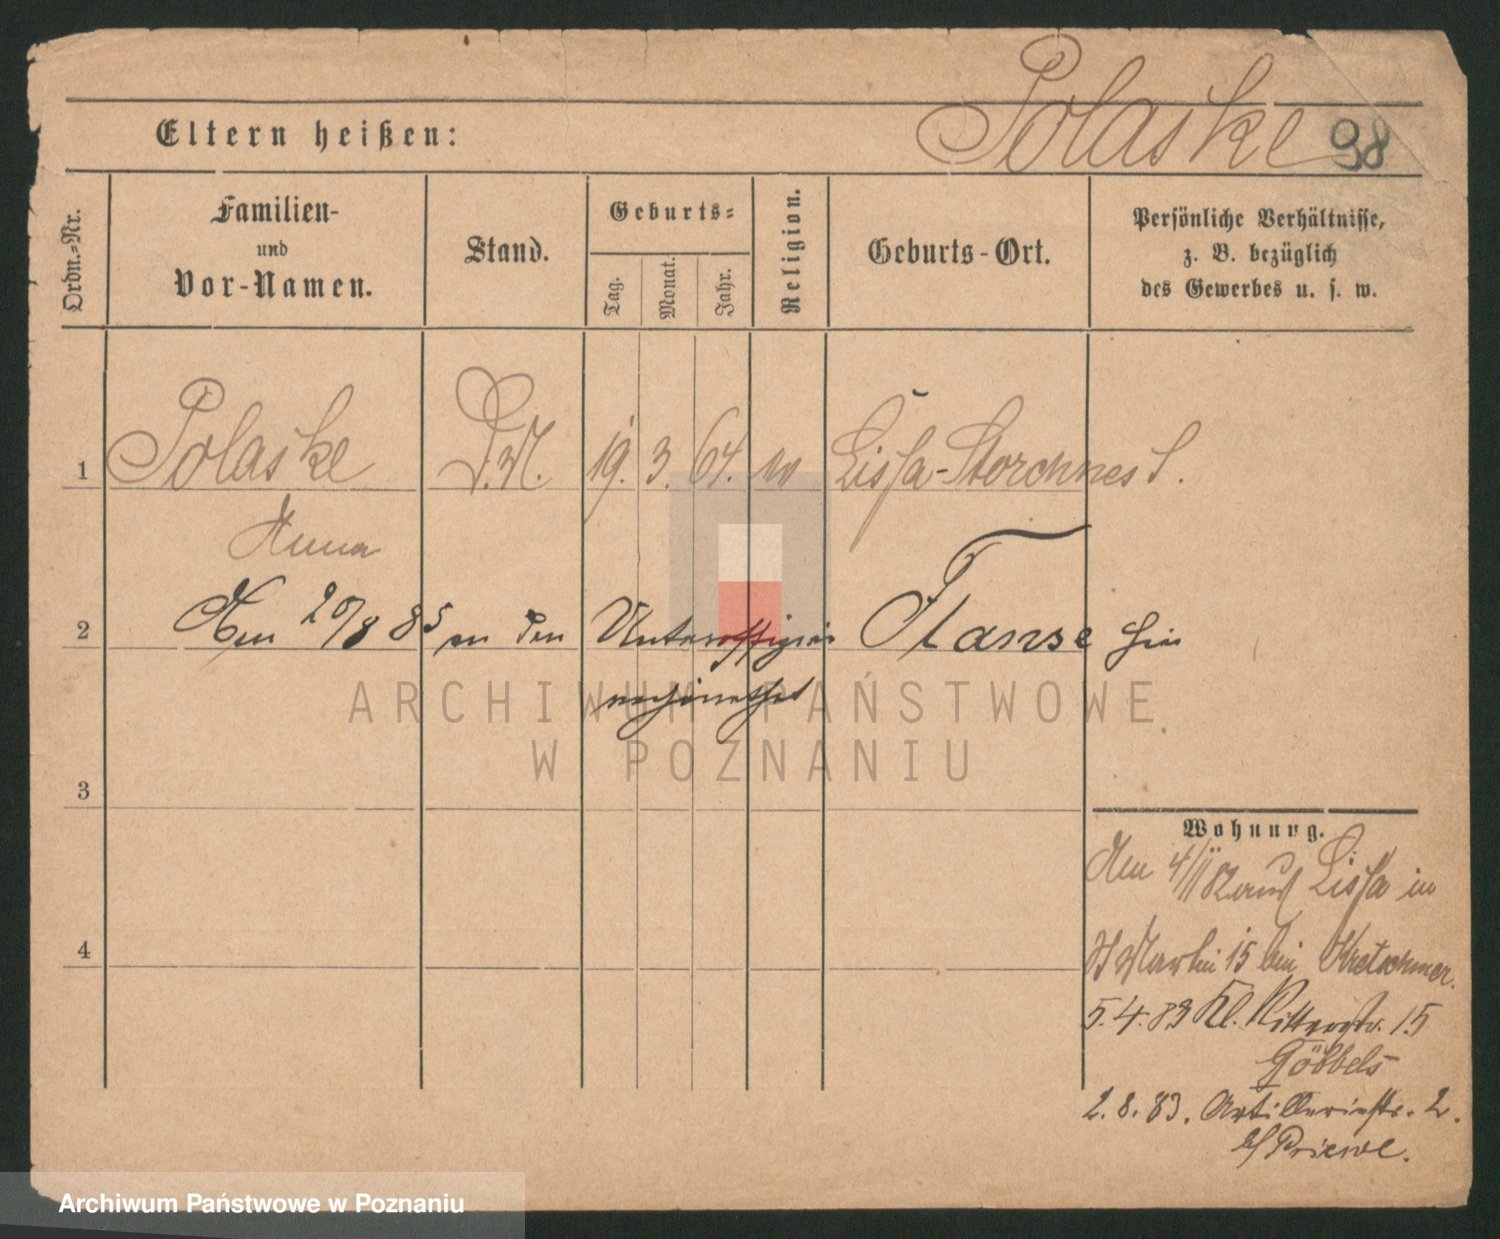 Polaske 98
Eltern heißen:
Ordn.-Nr.
Familien-
und
Vor-Namen.
Stand.
Geburts-
Tag.
Monat.
Jahr.
Religion.
Geburts-Ort.
Persönliche Verhältnisse,
z. B. bezüglich
des Gewerbes u. s. w.
1 Polaske D.M. 19. 3. 64. Lissa-Storchnest.
Anna
2 Am 20/8 85 an den Unteroffizier Flanse hier
verheirathet
ARCHIWUM PAŃSTWOWE
W POZNANIU
3
Wohnung.
Am 4/11 82 aus Lissa in
St Martin 15 bei Kretschmer.
4
5.4.83 Kl. Ritterstr. 15
Göbbels
2.8.83. Artilleriestr. 2.
b/ Priewe.
Archiwum Państwowe w Poznaniu